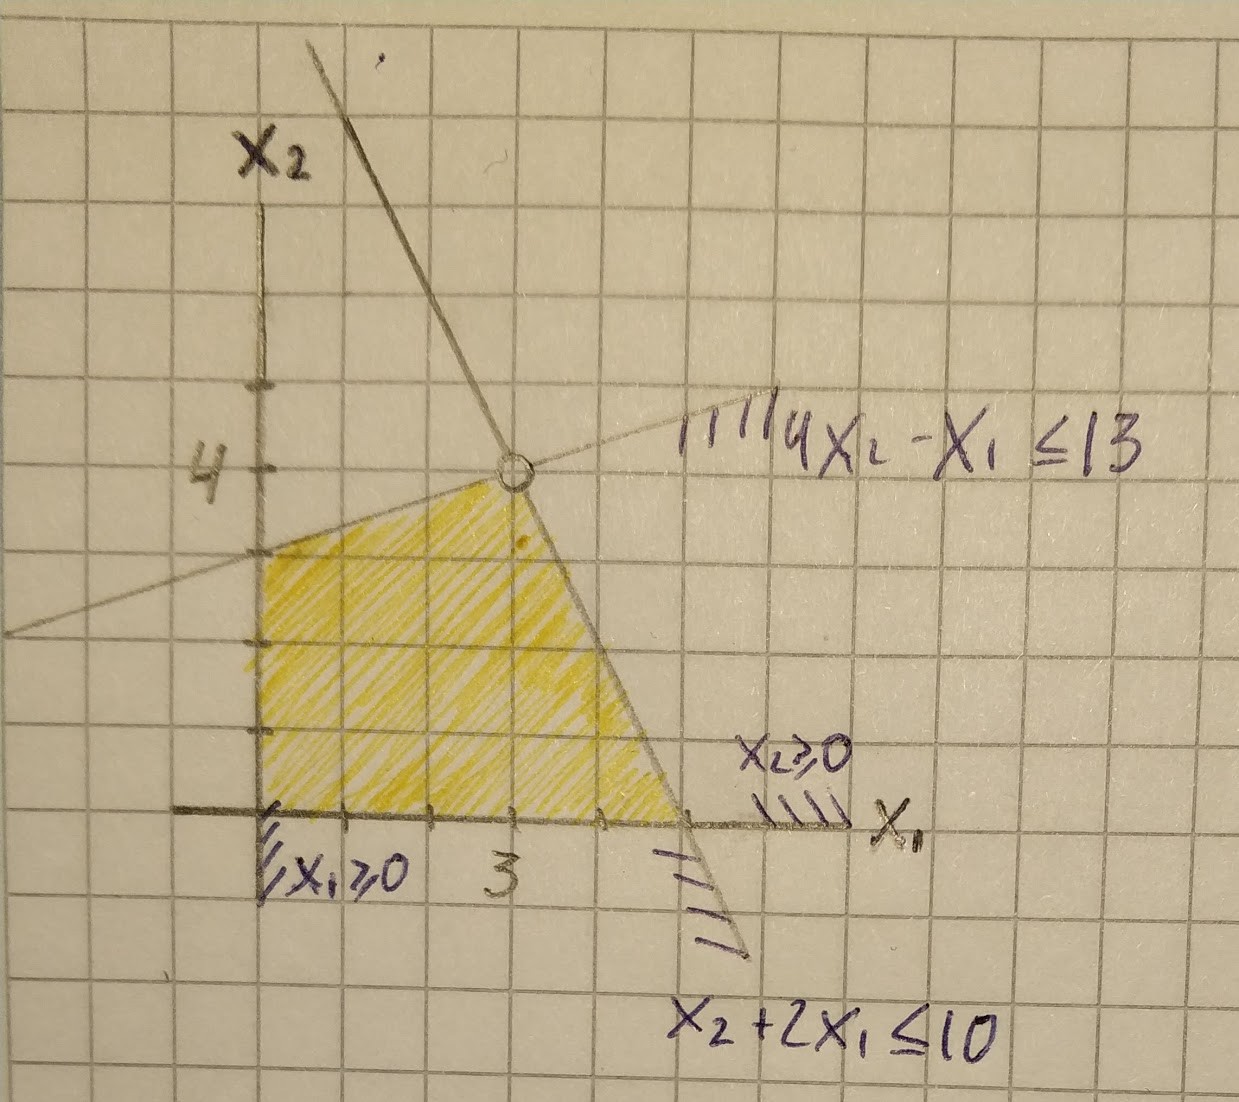 x₂
4x₂ -x₁ ≤13
4
x₂≥0
x₁
x₁≥0
3
x₂+2x₁≤10